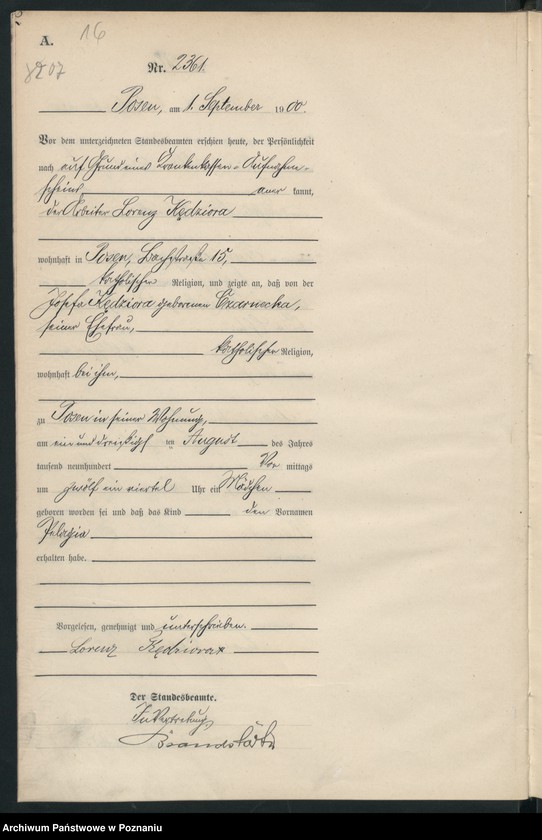 A. 16
Nr. 2361.
Posen, am 1. September 1900.
Vor dem unterzeichneten Standesbeamten erschien heute, der Persönlichkeit
nach auf Grund eines Krankenkassen-Aufnahme-
scheins aner kannt,
der Arbeiter Lorenz Kędziora
wohnhaft in Posen, Bachstraße 15,
katholischer Religion, und zeigte an, daß von der
Josefa Kędziora geborenen Czarnecka,
seiner Ehefrau,
katholischer Religion,
wohnhaft bei ihm,
zu Posen in seiner Wohnung,
am ein und dreißigsten August des Jahres
tausend neunhundert Vor mittags
um zwölf ein viertel Uhr ein Mädchen
geboren worden sei und daß das Kind den Vornamen
Pelagia
erhalten habe.
Vorgelesen, genehmigt und unterschrieben.
Lorenz Kędziora
Der Standesbeamte.
In Vertretung
Archiwum Państwowe w Poznaniu